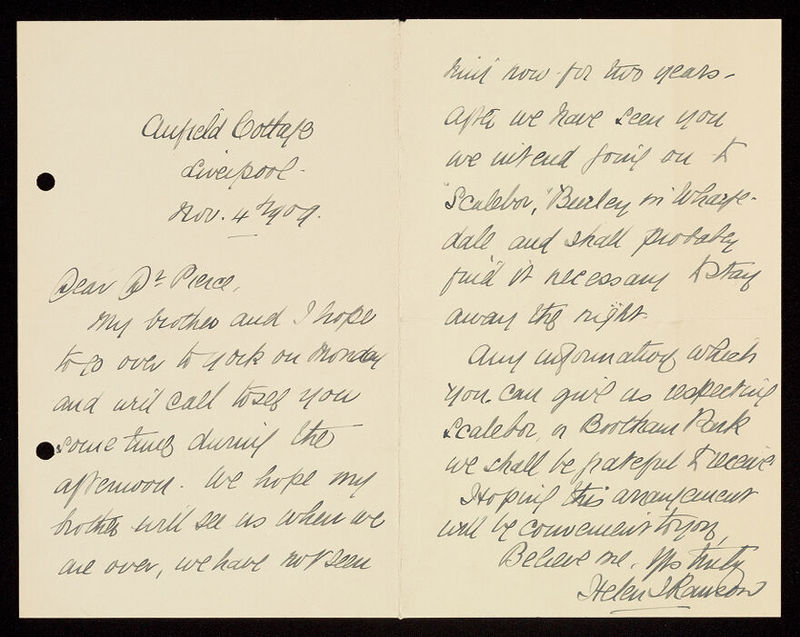 Anfield Cottage
Liverpool.
Nov. 4th 1909.
Dear Dr Pierce,
My brother and I hope
to go over to York on Monday
and will call to see you
some time during the
afternoon. We hope my
brother will see us when we
are over, we have not seen
him now for two years -
After we have seen you
we intend going on to
"Scalebor," Burley in Wharfe-
dale and shall probably
find it necessary to stay
away the night.
Any information which
you can give us respecting
Scalebor, or Bootham Park
we shall be grateful to receive
Hoping this arrangement
will be convenient to you,
Believe me, Yrs truly
Helen J Ransom